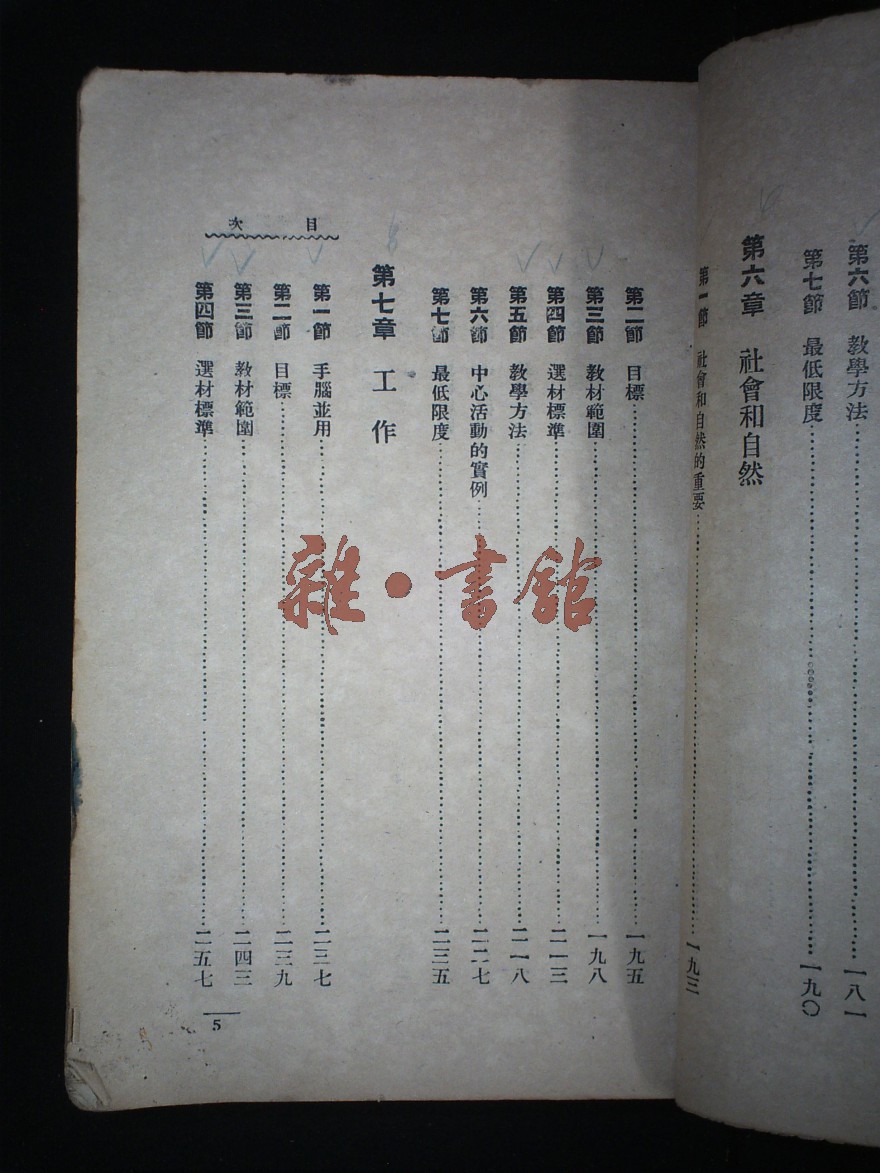 第六節 教學方法 一八一
第七節 最低限度 一九〇
第六章 社會和自然
第一節 社會和自然的重要 一九三
目次
第二節 目標 一九五
第三節 教材範圍 一九八
第四節 選材標準 二一三
第五節 教學方法 二一八
第六節 中心活動的實例 二二七
第七節 最低限度 二三五
第七章 工作
第一節 手腦並用 二三七
第二節 目標 二三九
第三節 教材範圍 二四三
第四節 選材標準 二五七
5
雜·書館